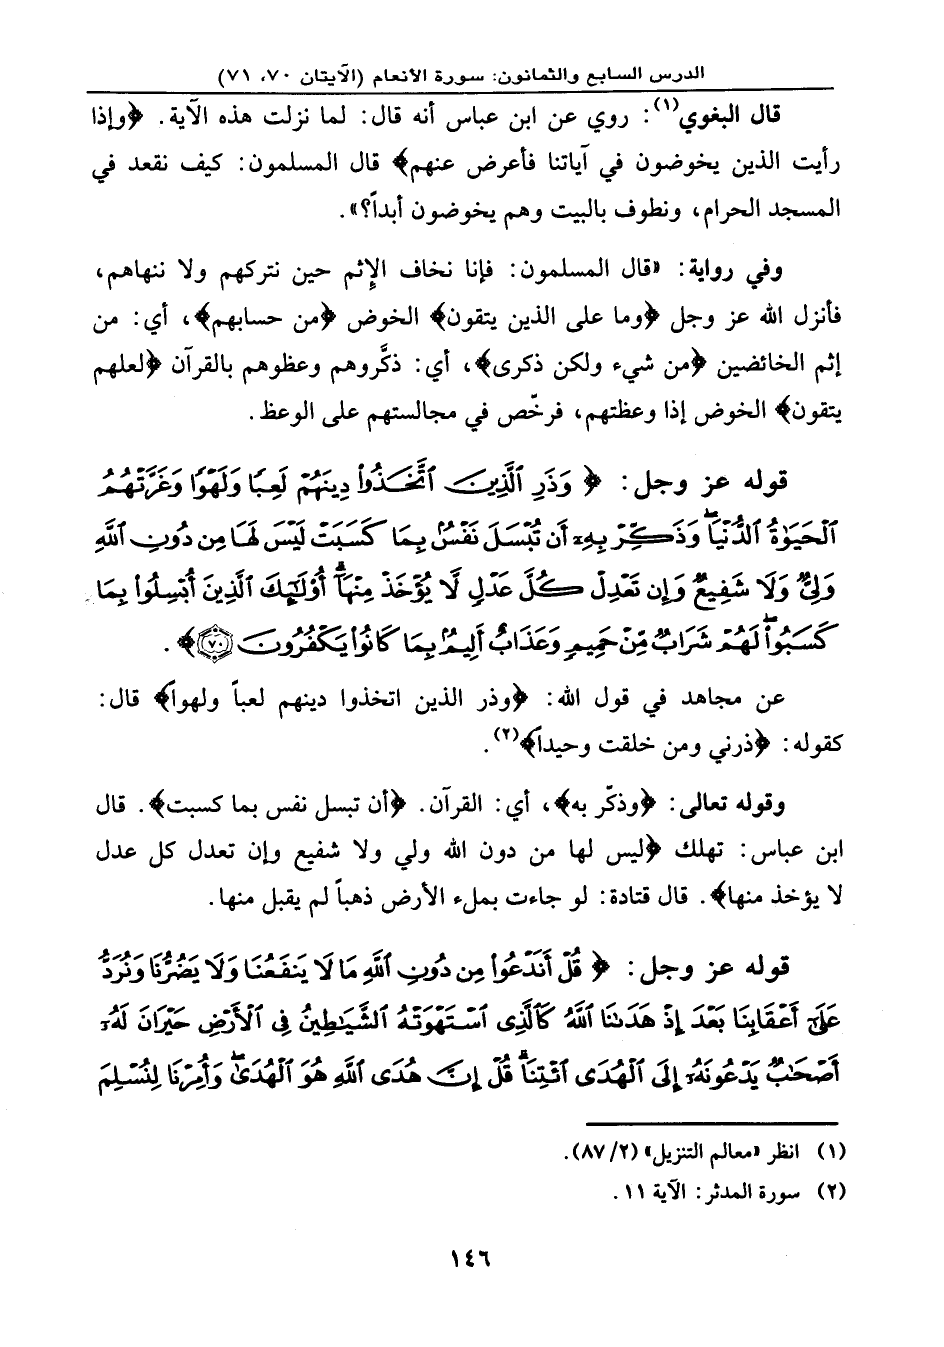 الدرس السابع والثمانون: سورة الأنعام (الآيتان ٧٠، ٧١)
قال البغوي(١): روي عن ابن عباس أنه قال: لما نزلت هذه الآية. ﴿وإذا
رأيت الذين يخوضون في آياتنا فأعرض عنهم﴾ قال المسلمون: كيف نقعد في
المسجد الحرام، ونطوف بالبيت وهم يخوضون أبداً؟».
وفي رواية: «قال المسلمون: فإنا نخاف الإِثم حين نتركهم ولا ننهاهم،
فأنزل الله عز وجل ﴿وما على الذين يتقون﴾ الخوض ﴿من حسابهم﴾، أي: من
إثم الخائضين ﴿من شيء ولكن ذكرى﴾، أي: ذكَّروهم وعظوهم بالقرآن ﴿لعلهم
يتقون﴾ الخوض إذا وعظتهم، فرخّص في مجالستهم على الوعظ.
قوله عز وجل: ﴿وَذَرِ ٱلَّذِينَ ٱتَّخَذُوا۟ دِينَهُمْ لَعِبًا وَلَهْوًا وَغَرَّتْهُمُ
ٱلْحَيَوٰةُ ٱلدُّنْيَا ۚ وَذَكِّرْ بِهِۦٓ أَن تُبْسَلَ نَفْسٌۢ بِمَا كَسَبَتْ لَيْسَ لَهَا مِن دُونِ ٱللَّهِ
وَلِىٌّ وَلَا شَفِيعٌ وَإِن تَعْدِلْ كُلَّ عَدْلٍ لَّا يُؤْخَذْ مِنْهَآ ۗ أُو۟لَٰٓئِكَ ٱلَّذِينَ أُبْسِلُوا۟ بِمَا
كَسَبُوا۟ ۖ لَهُمْ شَرَابٌ مِّنْ حَمِيمٍ وَعَذَابٌ أَلِيمٌۢ بِمَا كَانُوا۟ يَكْفُرُونَ ٧٠﴾.
عن مجاهد في قول الله: ﴿وذر الذين اتخذوا دينهم لعباً ولهواً﴾ قال:
كقوله: ﴿ذرني ومن خلقت وحيداً﴾(٢).
وقوله تعالى: ﴿وذكّر به﴾، أي: القرآن. ﴿أن تبسل نفس بما كسبت﴾. قال
ابن عباس: تهلك ﴿ليس لها من دون الله ولي ولا شفيع وإن تعدل كل عدل
لا يؤخذ منها﴾. قال قتادة: لو جاءت بملء الأرض ذهباً لم يقبل منها.
قوله عز وجل: ﴿قُلْ أَنَدْعُوا۟ مِن دُونِ ٱللَّهِ مَا لَا يَنفَعُنَا وَلَا يَضُرُّنَا وَنُرَدُّ
عَلَىٰٓ أَعْقَابِنَا بَعْدَ إِذْ هَدَىٰنَا ٱللَّهُ كَٱلَّذِى ٱسْتَهْوَتْهُ ٱلشَّيَٰطِينُ فِى ٱلْأَرْضِ حَيْرَانَ لَهُۥٓ
أَصْحَٰبٌ يَدْعُونَهُۥٓ إِلَى ٱلْهُدَى ٱئْتِنَا ۗ قُلْ إِنَّ هُدَى ٱللَّهِ هُوَ ٱلْهُدَىٰ ۖ وَأُمِرْنَا لِنُسْلِمَ
(١) انظر «معالم التنزيل» (٨٧/٢).
(٢) سورة المدثر: الآية ١١.
١٤٦